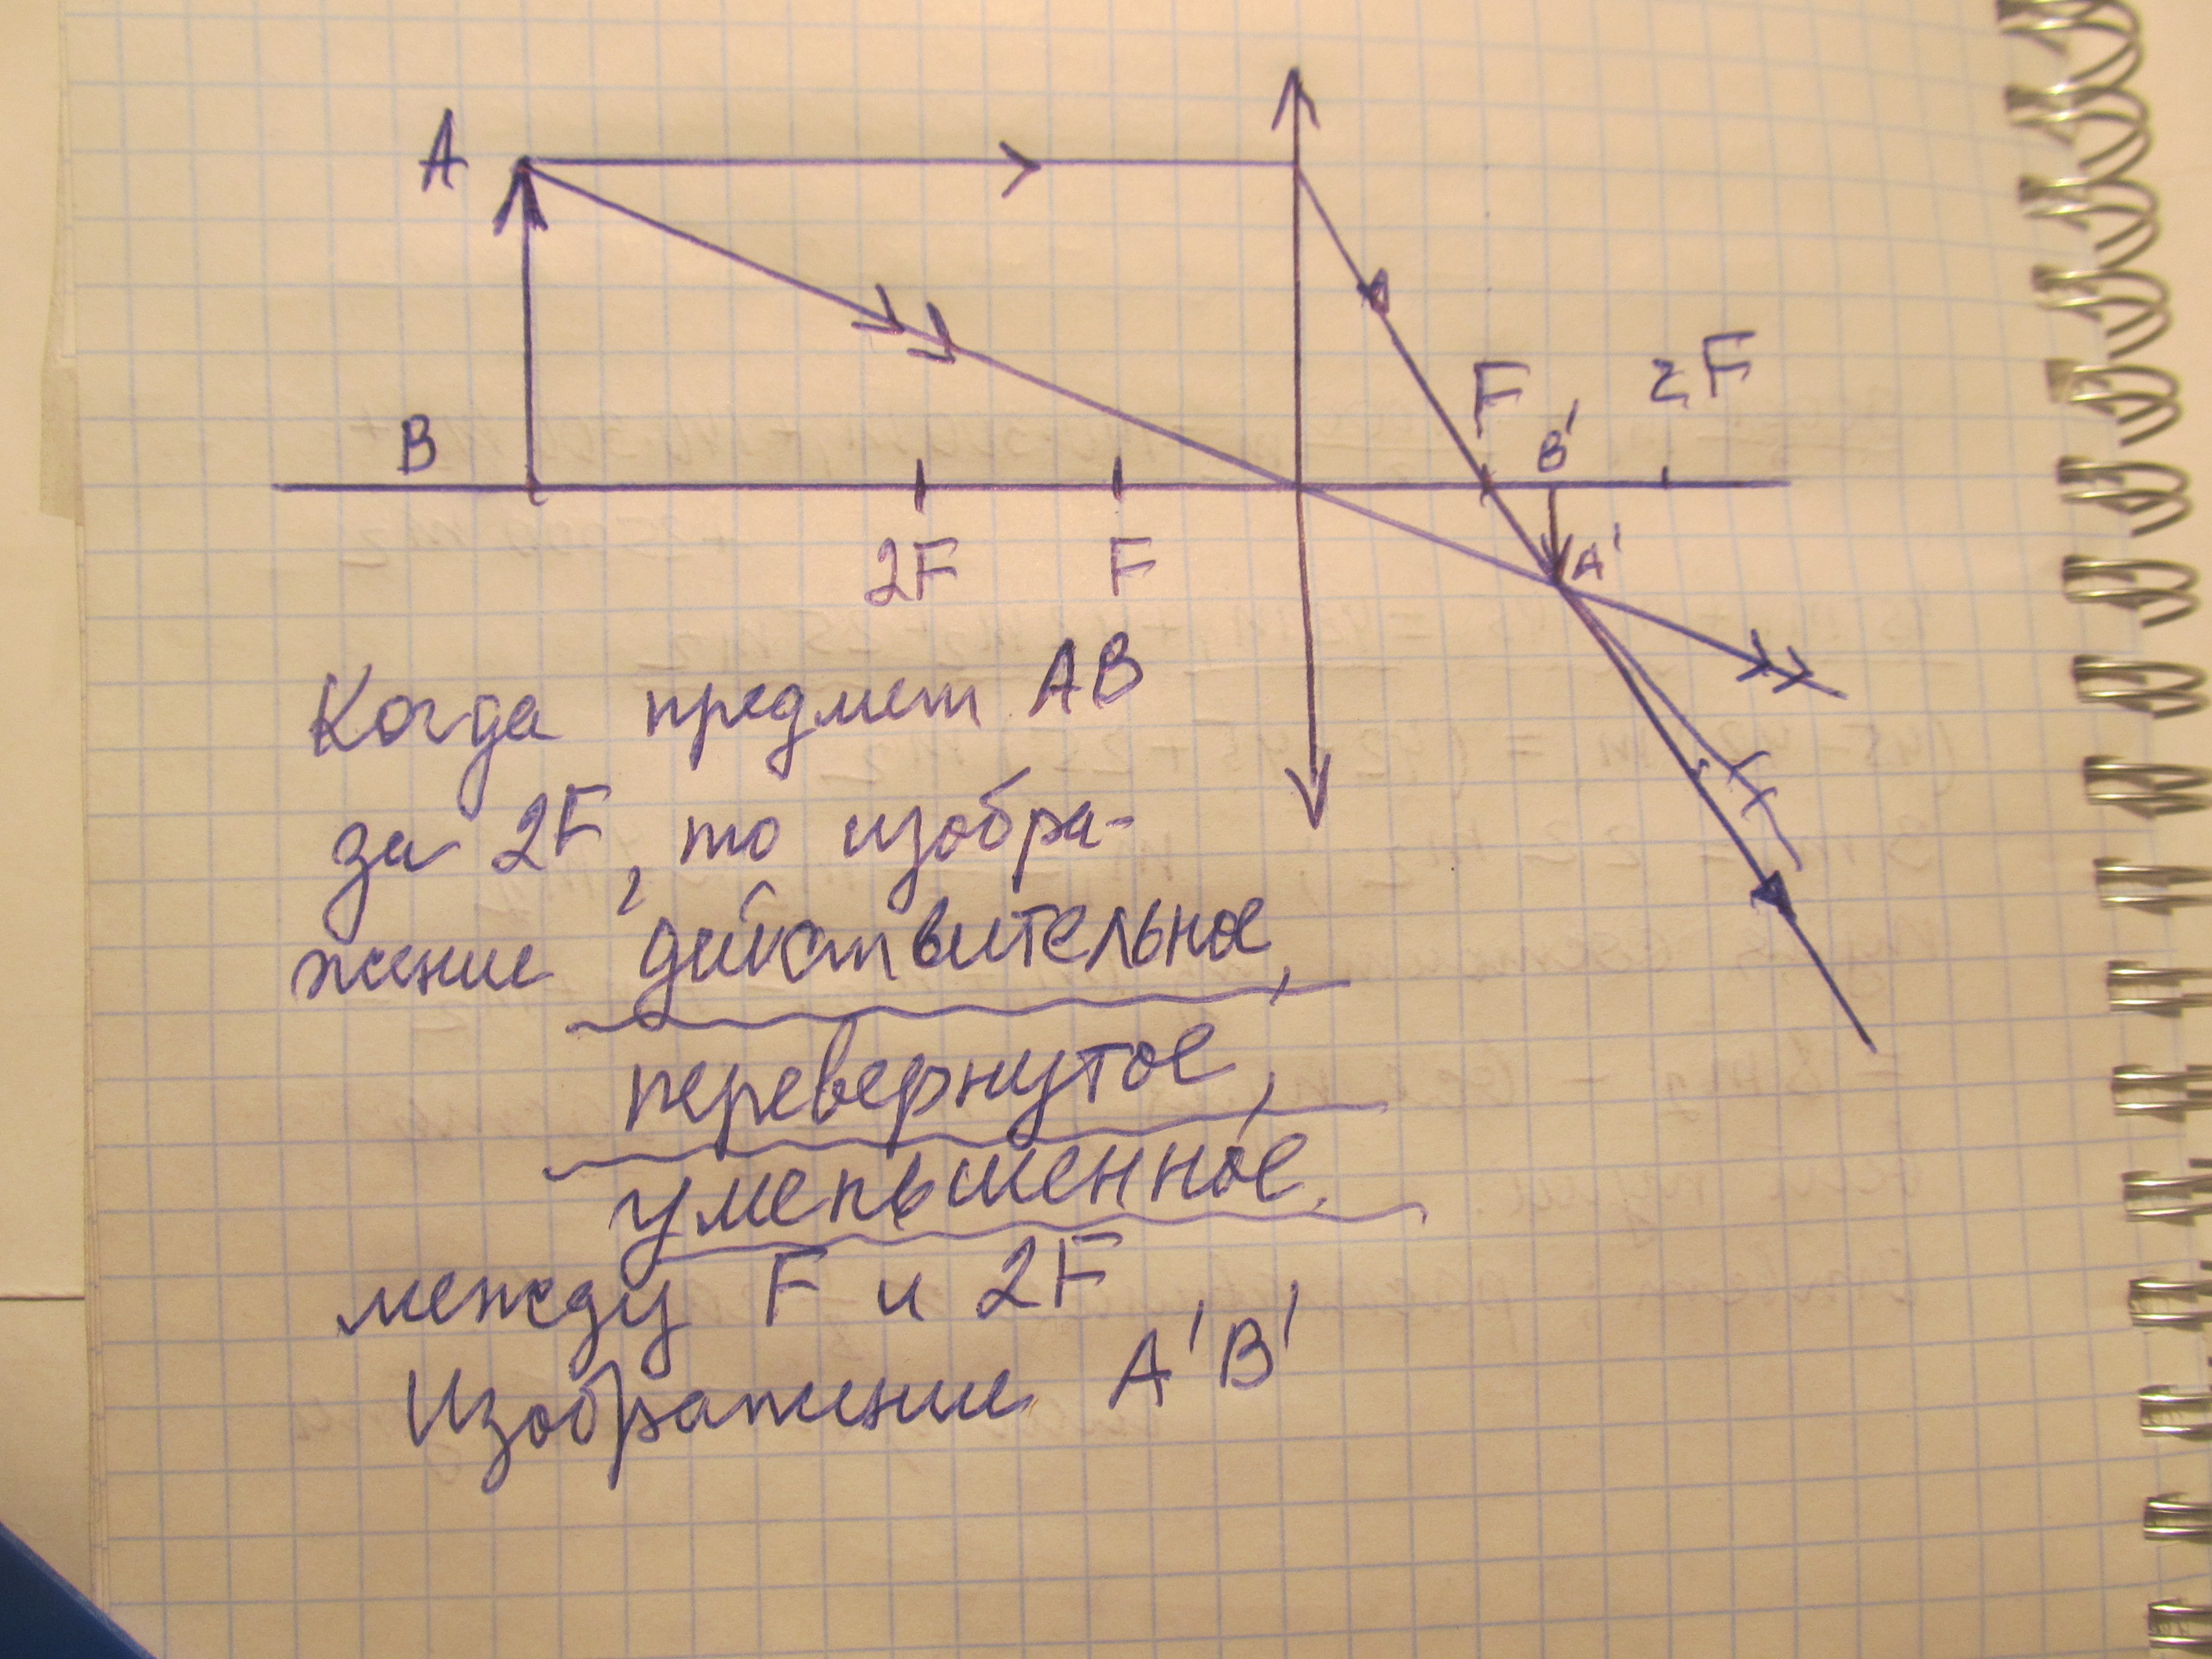 A
F
2F
B'
B
A'
2F
F
Когда предмет AB
за 2F, то изобра-
жение действительное,
перевернутое,
уменьшенное,
между F и 2F
Изображение A'B'